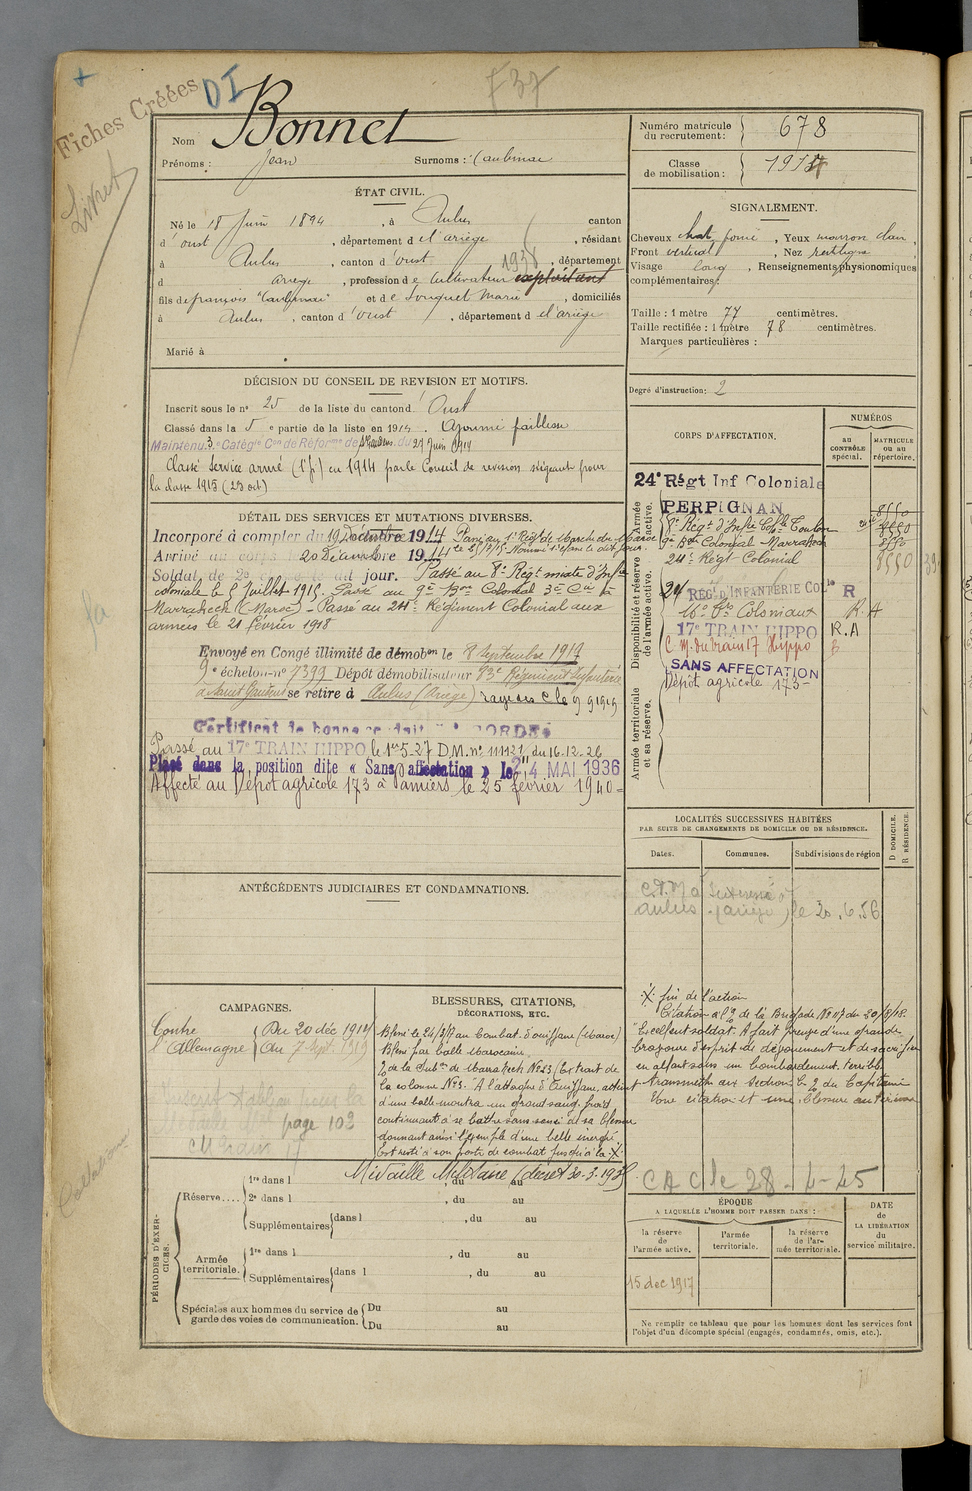 Fiches Créées
DI
737
Livret
Bonnet
Nom
Prénoms : Jean Surnoms : Caubinai
Numéro matricule du recrutement : 678
Classe de mobilisation : 1914
ÉTAT CIVIL.
Né le 18 Juin 1894, à Aulus canton
d'oust, département d e l'ariège, résidant
à Aulus, canton d'oust 1938, département
d ariege, profession d e cultivateur exploitant
fils de françois "Caubinai" et d e Souquet Marie, domiciliés
à Aulus, canton d'oust, département d e l'ariège
Marié à
SIGNALEMENT.
Cheveux chat. foncé, Yeux marron clair,
Front vertical, Nez rectiligne
Visage long, Renseignements physionomiques
complémentaires :
Taille : 1 mètre 77 centimètres.
Taille rectifiée : 1 mètre 78 centimètres.
Marques particulières :
Degré d'instruction : 2
DÉCISION DU CONSEIL DE REVISION ET MOTIFS.
Inscrit sous le n° 25 de la liste du canton d' Oust
Classé dans la 5 e partie de la liste en 1914. Ajourné faiblesse
Maintenu 3e Catégie Con de Réforme de St Gaudens du 27 Juin 1914
Classé Service armé (1e p.) en 1914 par le Conseil de revision siégeant pour
la classe 1915 (23 oct)
DÉTAIL DES SERVICES ET MUTATIONS DIVERSES.
Incorporé à compter du 19 Décembre 1914 Passé au 1er Régt de Marche du Maroc
Arrivé au corps le 20 Décembre 1914
Soldat de 2e classe le dit jour. Passé au 8e Régt mixte d'Infie
coloniale le 5 Juillet 1915. Passé au 9e Bon Colonial 3e Cie à
Marrakech (Maroc) - Passé au 24e Régiment Colonial aux
armées le 21 février 1918
Envoyé en Congé illimité de démobon le 8 Septembre 1919
9e échelon n° 7399 Dépôt démobilisateur 83e Régiment d'Infanterie
à Saint Gaudens se retire à Aulus (Ariège) rayé des C le 9 9 1919
Certificat de bonne conduite ACCORDÉ
Passé au 17e TRAIN HIPPO le 1er 5-27 D.M. n° 111121 du 16-12-26
Placé dans la position dite « Sans affectation » le 24 MAI 1936
Affecté au Dépôt agricole 173 à Pamiers le 25 février 1940 =
CORPS D'AFFECTATION.
NUMÉROS
au CONTRÔLE spécial.
MATRICULE ou au répertoire.
Armée active.
24e Régt Inf Coloniale
PERPIGNAN
8e Régt d'Infie Colle Toulon
9e Bon Colonial - Marrakech
24e Régt Colonial
8550
Disponibilité et réserve de l'armée active.
24 RÉGt D'INFANTERIE COLle R
16e Son Coloniaux R.A
17e TRAIN HIPPO R.A
C M. du train 17 Hippo B
SANS AFFECTATION
Dépôt agricole 173 -
Armée territoriale et sa réserve.
LOCALITÉS SUCCESSIVES HABITÉES
PAR SUITE DE CHANGEMENTS DE DOMICILE OU DE RÉSIDENCE.
Dates.
Communes.
Subdivisions de région
D DOMICILE.
R RÉSIDENCE.
aulus (ariège) le 20.6.56
ANTÉCÉDENTS JUDICIAIRES ET CONDAMNATIONS.
CAMPAGNES.
Contre l'Allemagne
Du 20 déc 1914
au 7 Sept. 1919
page 103
BLESSURES, CITATIONS,
DÉCORATIONS, ETC.
Blessé le 24/3/17 au Combat d'ouiffane (Maroc)
Blessé par balle marocaine
O de la Subon de Marrakech N°23 (Extrait de
la colonne N°3. "A l'attaque d'Ouiffane, atteint
d'une balle montra un grand sang froid
continuant à se battre sans souci de sa blessure
donnant ainsi l'exemple d'une belle énergie
Est resté à son poste de combat jusqu'à la ·X·
·X· fin de l'action
Citation à l'O de la Brigade N° 117 du 20/8/18.
"Excellent soldat. A fait preuve d'une grande
bravoure d'esprit de dévouement et de sacrifice
en allant sous un bombardement terrible
transmettre aux Sections les O du Capitaine
Une citation et une blessure antérieures
Médaille Militaire (décret 30-3-1935
C A C le 28-4-45
PÉRIODES D'EXERCICES.
Réserve....
1re dans l , du au
2e dans l , du au
Supplémentaires dans l , du au
Armée territoriale.
1re dans l , du au
Supplémentaires dans l , du au
Spéciales aux hommes du service de garde des voies de communication.
Du au
Du au
ÉPOQUE
A LAQUELLE L'HOMME DOIT PASSER DANS :
la réserve de l'armée active.
l'armée territoriale.
la réserve de l'armée territoriale.
DATE de LA LIBÉRATION du service militaire.
15 dec 1917
Ne remplir ce tableau que pour les hommes dont les services font
l'objet d'un décompte spécial (engagés, condamnés, omis, etc.).